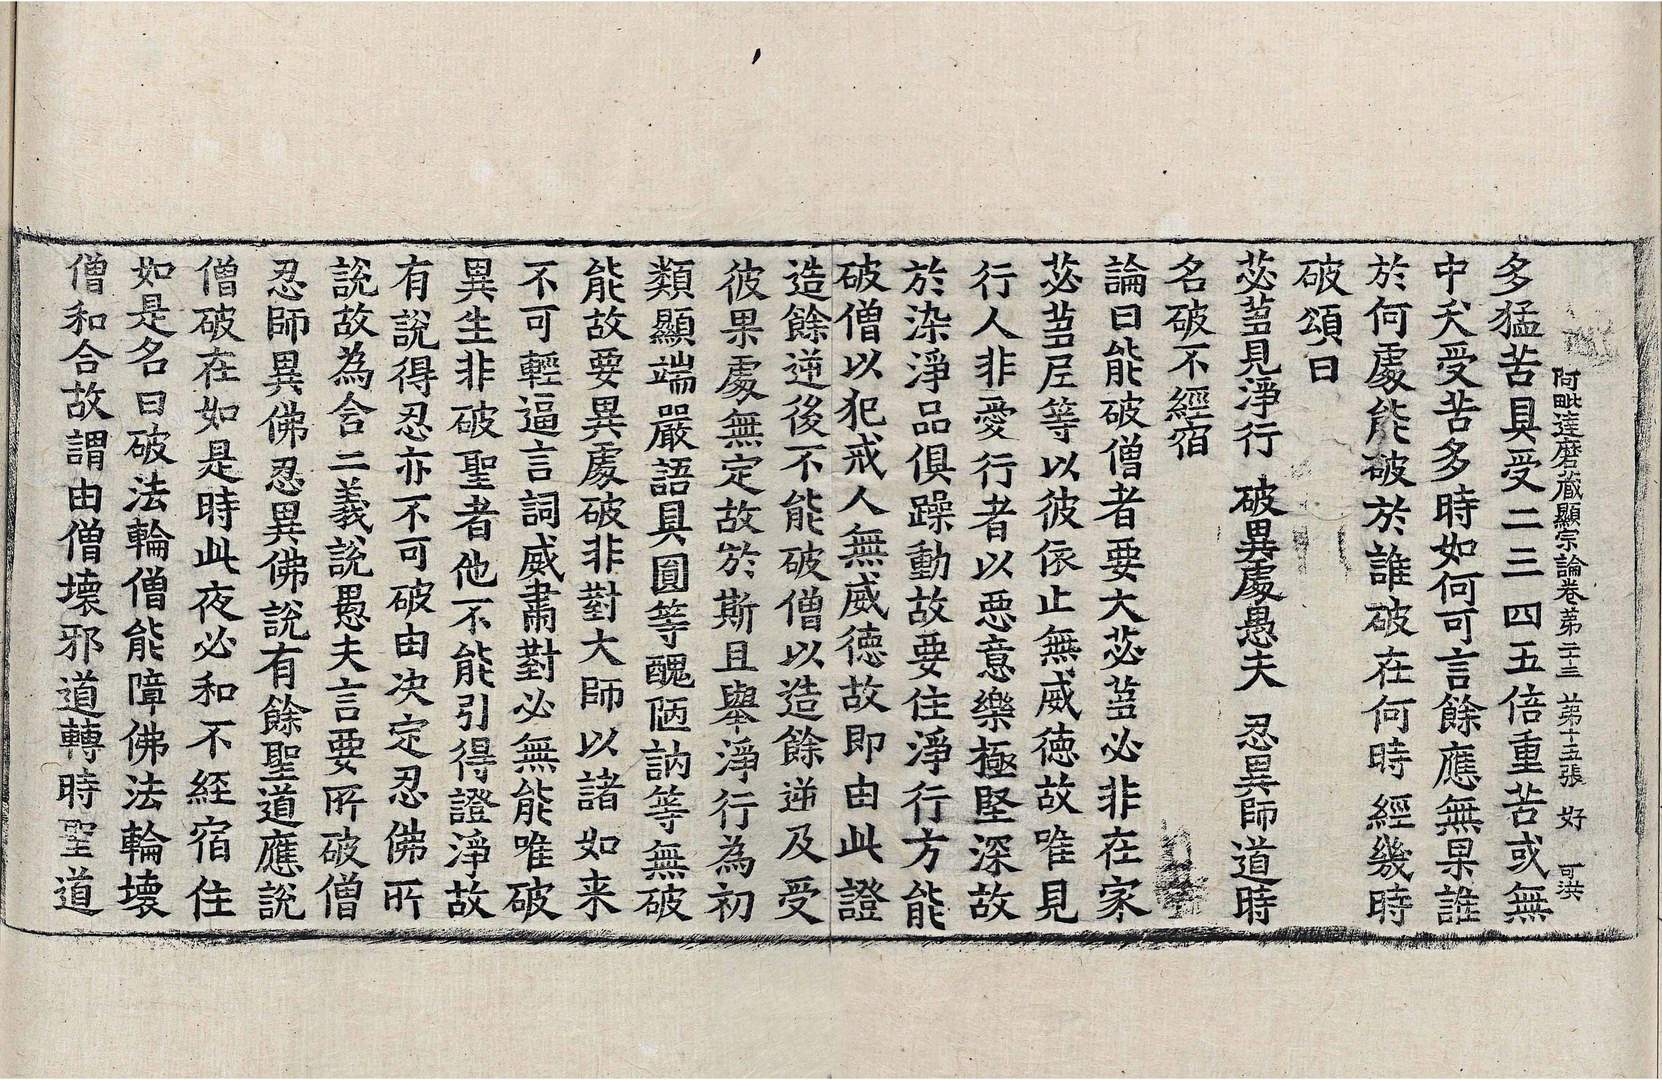 阿毗達磨蔵顯宗論卷苐二十三 苐十五張 好 可洪
多猛苦具受二三四五倍重苦或無
中夭受苦多時如何可言餘應無果誰
於何處能破於誰破在何時經幾時
破頌曰
苾芻見淨行 破異處愚夫 忍異師道時
名破不經宿
論曰能破僧者要大苾芻必非在家
苾芻尼等以彼依止無威德故唯見
行人非愛行者以惡意樂極堅深故
於染淨品俱躁動故要住淨行方能
破僧以犯戒人無威德故即由此證
造餘逆後不能破僧以造餘逆及受
彼果處無定故於斯且舉淨行為初
類顯端嚴語具圓等醜陋訥等無破
能故要異處破非對大師以諸如来
不可輕逼言詞威肅對必無能唯破
異生非破聖者他不能引得證淨故
有說得忍亦不可破由決定忍佛所
說故為合二義說愚夫言要所破僧
忍師異佛忍異佛說有餘聖道應說
僧破在如是時此夜必和不經宿住
如是名曰破法輪僧能障佛法輪壞
僧和合故謂由僧壞邪道轉時聖道